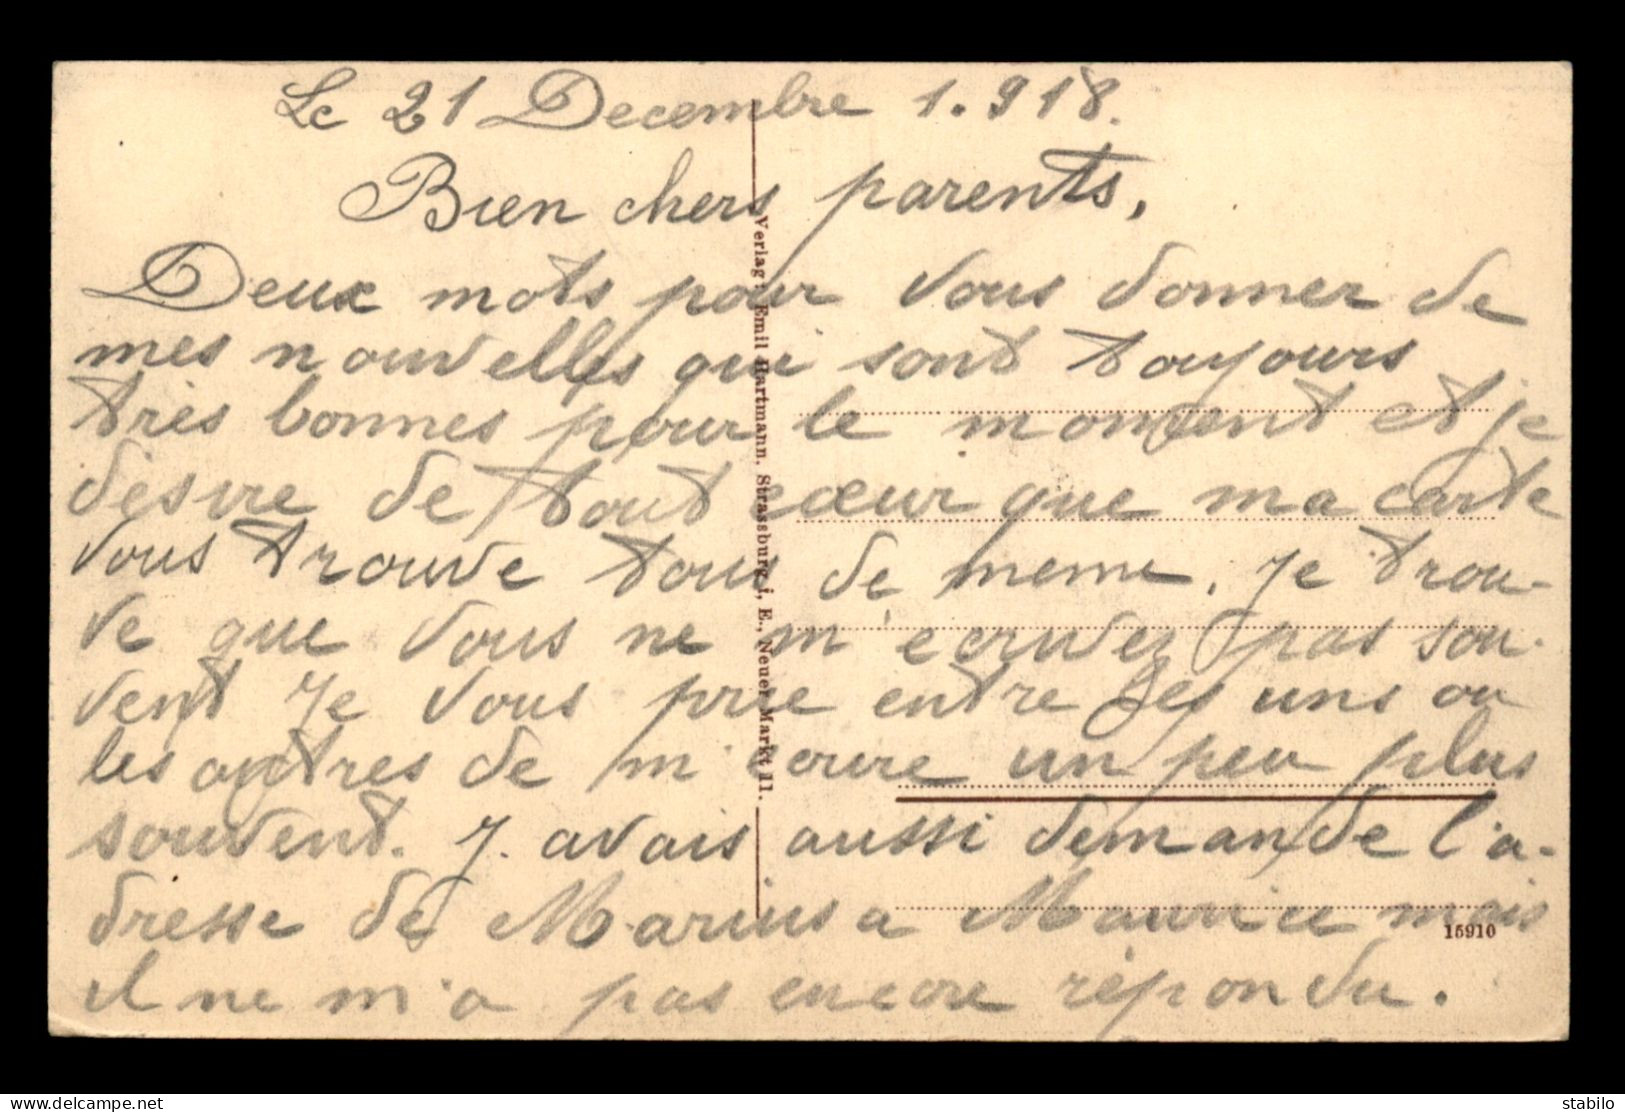 Le 21 Decembre 1.918.
Bien chers parents,
Deux mots pour vous donner de
mes nouvelles qui sont toujours
très bonnes pour le moment et je
désire de tout cœur que ma carte
vous trouve tous de meme. Je trou-
ve que vous ne m'ecrivez pas sou-
vent Je vous prie entre les uns ou
les autres de m'ecrire un peu plus
souvent. J. avais aussi demande l'a-
dresse de Marius a Maurice mais
il ne m'a pas encore répondu.
Verlag: Emil Hartmann, Strassburg i. E., Neuer Markt 11.
15910
delcampe.net
stabilo